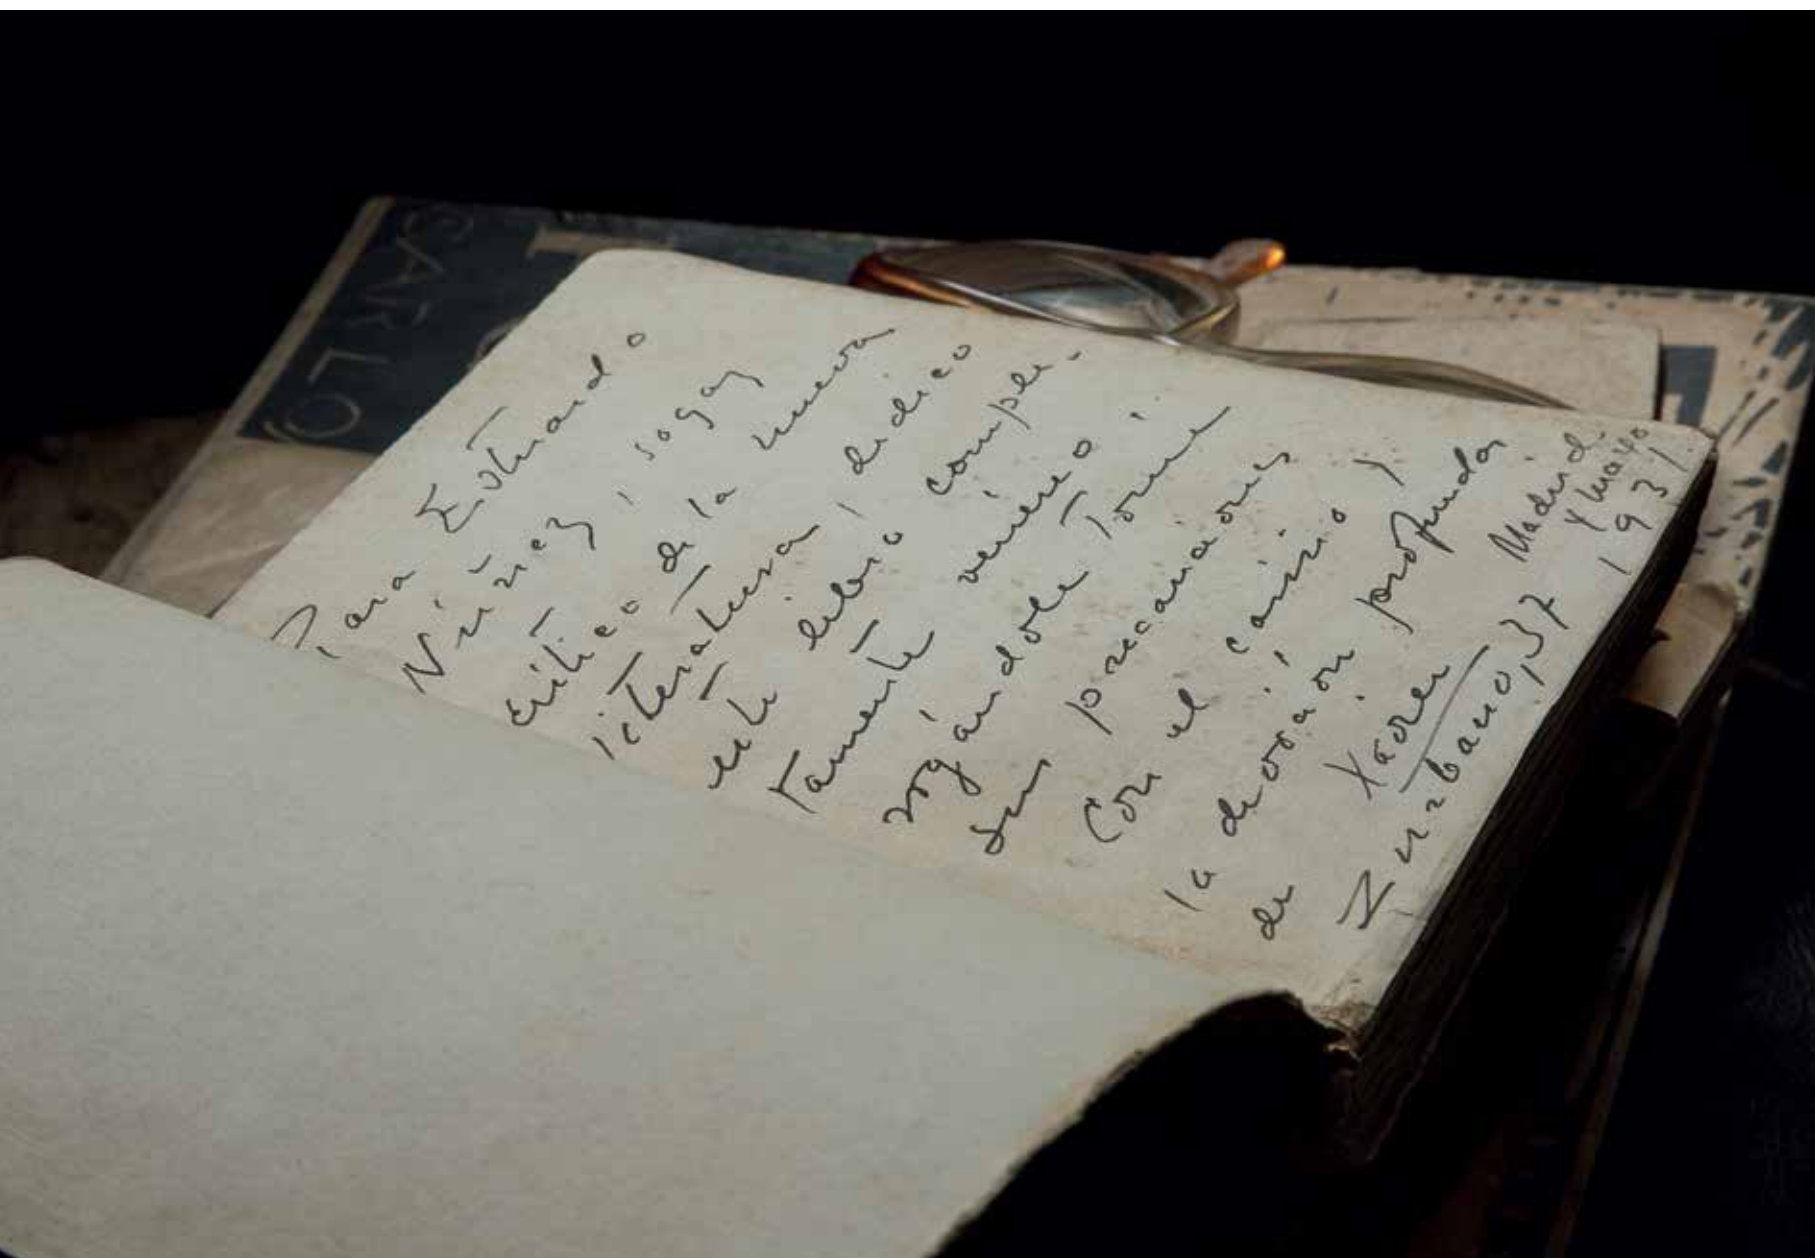 CARLO
Para Estuardo
Núñez, sagaz
crítico de la nueva
literatura, dedico
este libro comple-
tamente venéreo i
rogándole tome
sus precauciones
Con el cariño y
la devoción profunda
de Xavier
Zurbano, 37
Madrid.
y mayo
1931.